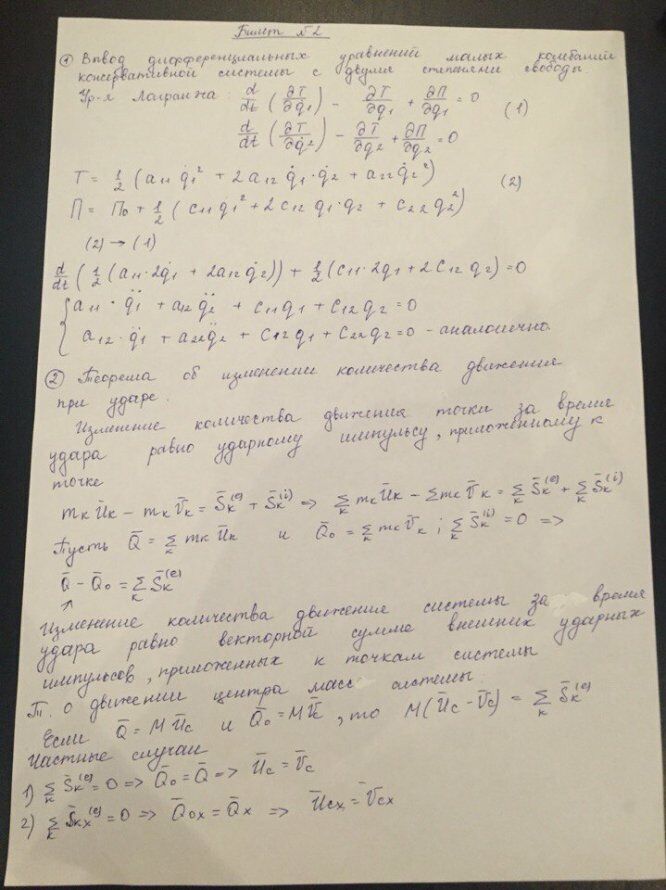 Билет №2
① Вывод дифференциальных уравнений малых колебаний
консервативной системы с двумя степенями свободы.
Ур-я Лагранжа: d/dt (∂T/∂q̇₁) - ∂T/∂q₁ + ∂П/∂q₁ = 0 (1)
d/dt (∂T/∂q̇₂) - ∂T/∂q₂ + ∂П/∂q₂ = 0
T = 1/2 (a₁₁ q̇₁² + 2a₁₂ q̇₁·q̇₂ + a₂₂ q̇₂²) (2)
П = П₀ + 1/2 (c₁₁ q₁² + 2c₁₂ q₁·q₂ + c₂₂ q₂²)
(2) → (1)
d/dt (1/2 (a₁₁·2q̇₁ + 2a₁₂ q̇₂)) + 1/2 (c₁₁·2q₁ + 2c₁₂ q₂) = 0
{ a₁₁·q̈₁ + a₁₂ q̈₂ + c₁₁q₁ + c₁₂q₂ = 0
a₁₂·q̈₁ + a₂₂q̈₂ + c₁₂q₁ + c₂₂q₂ = 0 - аналогично.
② Теорема об изменении количества движения
при ударе.
Изменение количества движения точки за время
удара равно ударному импульсу, приложенному к
точке
mₖŪₖ - mₖV̄ₖ = S̄ₖ⁽ᵉ⁾ + S̄ₖ⁽ⁱ⁾ => Σₖ mₖŪₖ - Σmₖ V̄ₖ = Σₖ S̄ₖ⁽ᵉ⁾ + Σₖ S̄ₖ⁽ⁱ⁾
Пусть Q̄ = Σₖ mₖ Ūₖ и Q̄₀ = Σₖ mₖ V̄ₖ ; Σₖ S̄ₖ⁽ⁱ⁾ = 0 =>
Q̄ - Q̄₀ = Σₖ S̄ₖ⁽ᵉ⁾
↗
Изменение количества движение системы за время
удара равно векторной сумме внешних ударных
импульсов, приложенных к точкам системы
Т. о движении центра масс системы.
Если Q̄ = M Ūc и Q̄₀ = M V̄c, то M(Ūc - V̄c) = Σₖ S̄ₖ⁽ᵉ⁾
Частные случаи
1) Σₖ S̄ₖ⁽ᵉ⁾ = 0 => Q̄₀ = Q̄ => Ūc = V̄c
2) Σₖ S̄ₖₓ⁽ᵉ⁾ = 0 => Q̄₀ₓ = Q̄ₓ => Ūcₓ = V̄cₓ